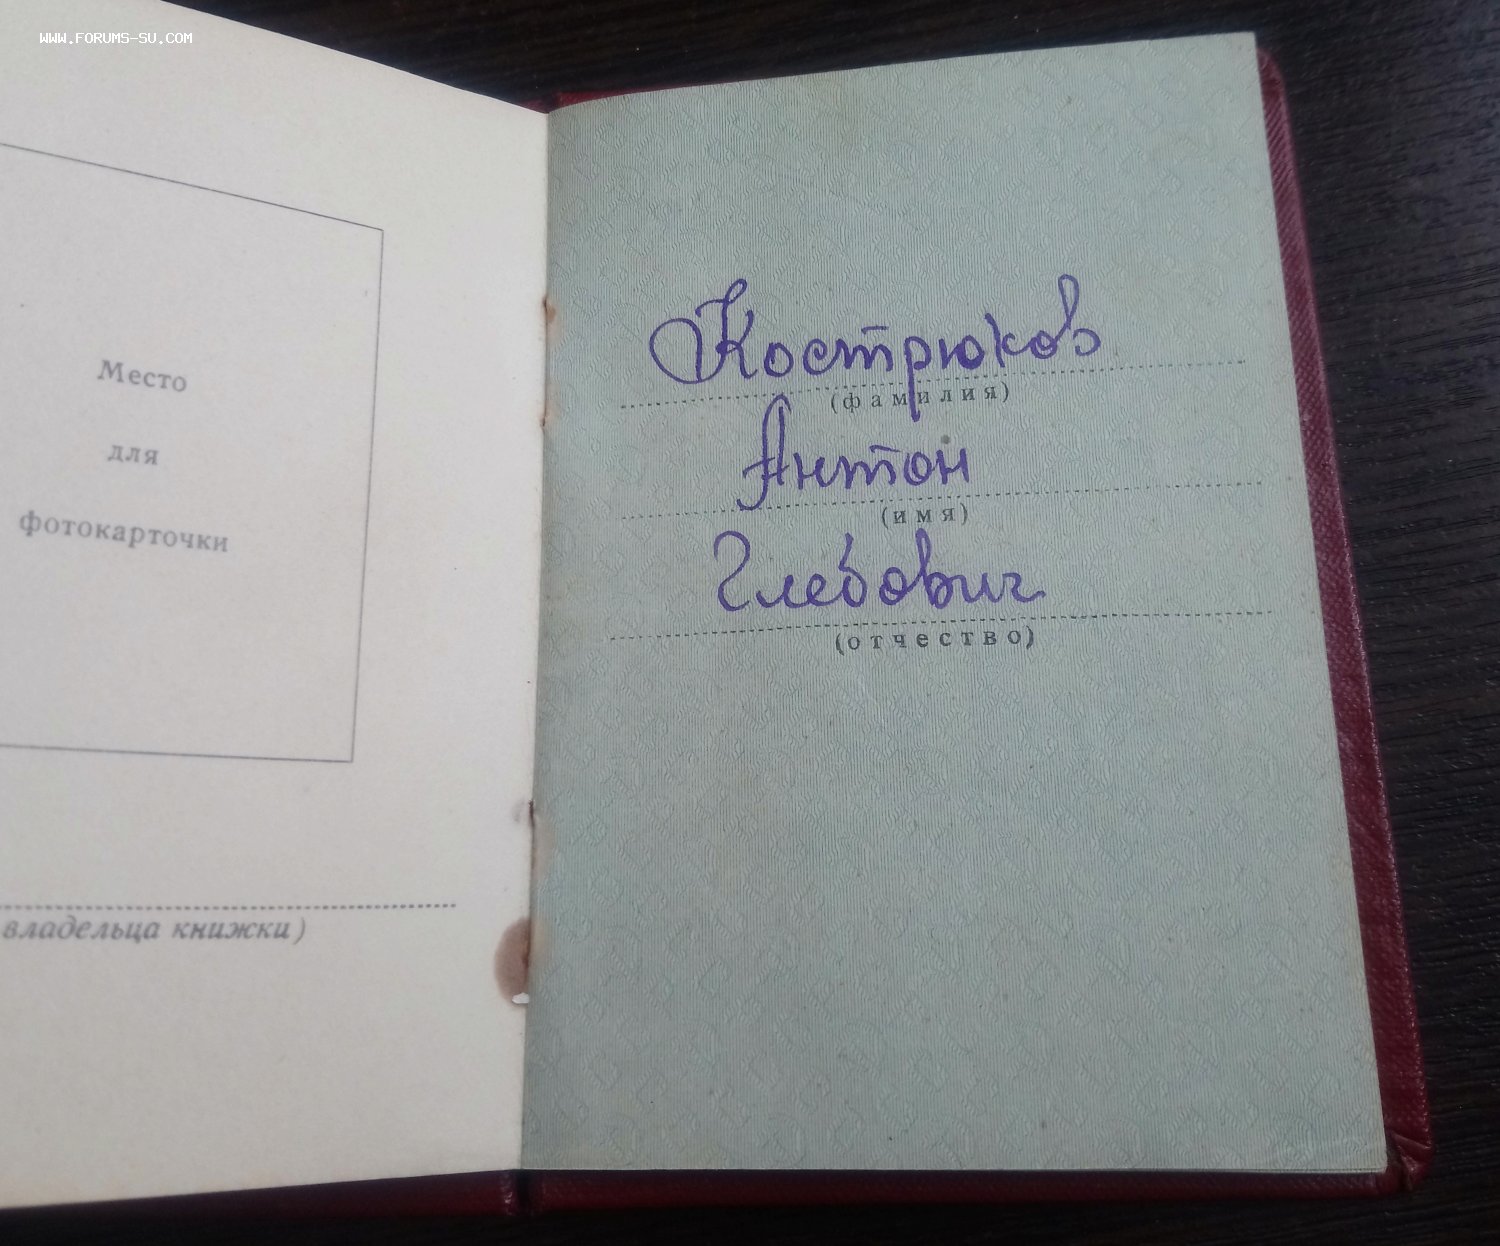 WWW.FORUMS-SU.COM
Место
для
фотокарточки
владельца книжки)
Кострюков
(фамилия)
Антон
(имя)
Глебович
(отчество)